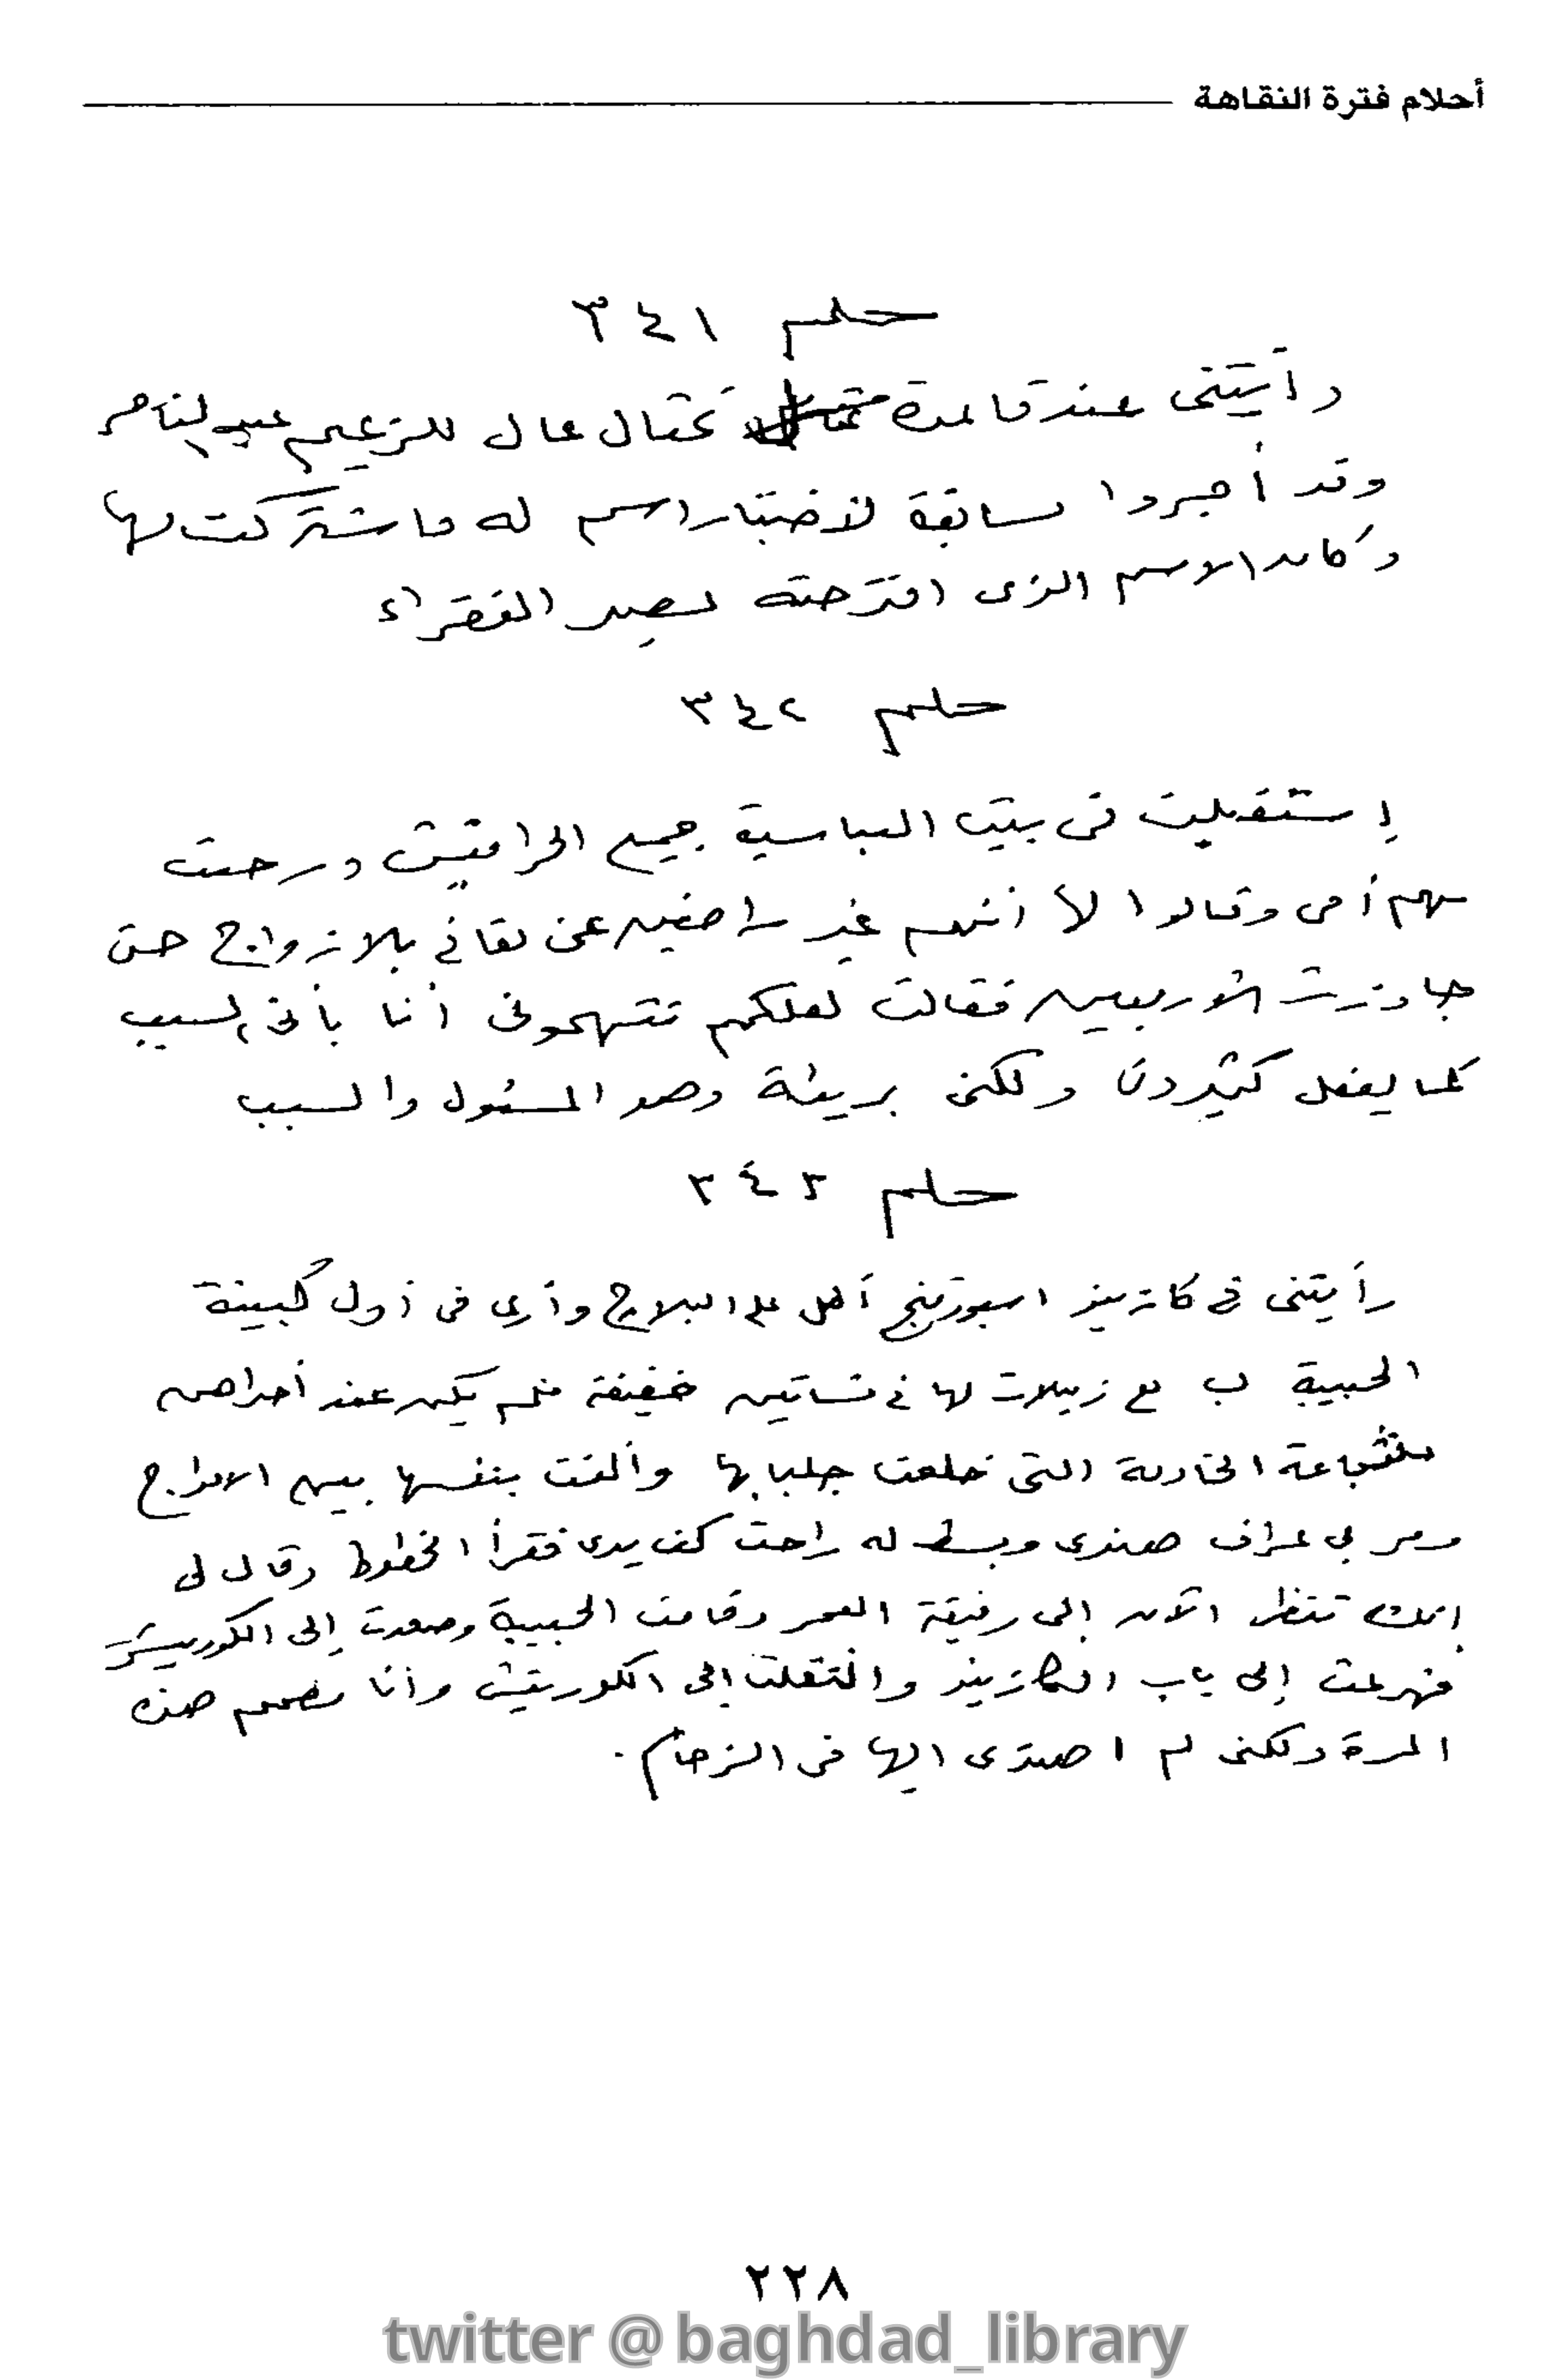 أحلام فترة النقاهة
حلم ٣٤١
رأيتنى عند قاعدة تمثال عال للزعيم عبد الناصر
وقد أجروا مسابقة لاختيار اسم له فاشتركت بها
وكان الاسم الذى اقترحته نصير الفقراء
حلم ٣٤٢
إستقبلت فى بيت العباسية جميع الحرافيش ورحبت
بهم أمى وقالوا لها أنهم غير راضين عن بقائى بلا زواج حتى
جاوزت الأربعين فقالت لعلكم تتهمونى أنا بأنى السبب
كما يفعل كثيرون ولكنى بريئة وهو المسئول والسبب
حلم ٣٤٣
رأيتنى فى كازينو اسبورتنج أطل على البلاج وأرى فى أول كبينة
الحبيبة ب مع زميلات لها فى فساتين خفيفة فلم يكن عند أحداهن
شجاعة الخادمة التى خلعت جلبابها وألقت بنفسها بين الامواج
ومر بى عراف هندى وبسط له راحت كف يدى فقرأ الخطوط وقال لى
إنك تنظر الآن إلى رفيقة العمر وقامت الحبيبة وصعدت إلى الكورنيش
فهرعت إلى باب الكازينو وانتقلت إلى الكورنيش وأنا مصمم هذه
المرة ولكنى لم اهتدى اليها فى الزحام.
٢٢٨
twitter @baghdad_library